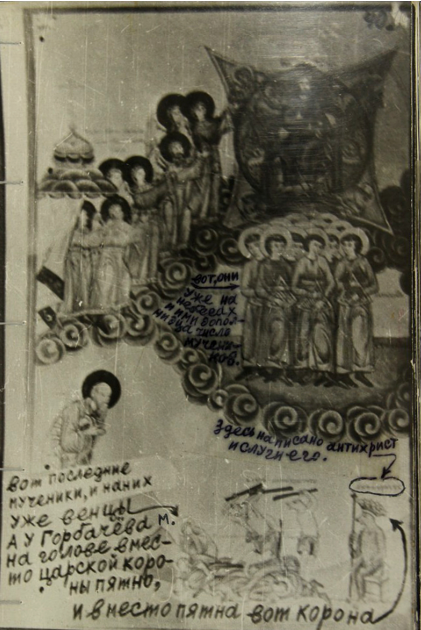 40.
вот, они
уже на
небесах
и ими допол-
нився число
мучени-
ков.
Здесь написано антихрист
и слуги его.
вот последние
мученики, и на них
уже венцы
А У Горбачёва м.
на голове вмес-
то царской коро-
ны пятно,
и вместо пятна вот корона